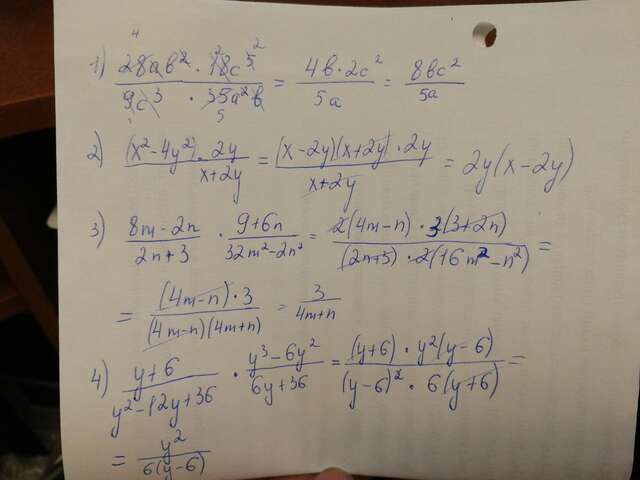 1) 28ab² · 18c⁵ / 9c³ · 35a²b = 4b · 2c² / 5a = 8bc² / 5a
2) (x² - 4y²) · 2y / x+2y = (x - 2y)(x + 2y) · 2y / x+2y = 2y(x - 2y)
3) 8m - 2n / 2n + 3 · 9 + 6n / 32m² - 2n² = 2(4m - n) · 3(3 + 2n) / (2n+3) · 2(16m² - n²) =
= (4m - n) · 3 / (4m - n)(4m + n) = 3 / 4m + n
4) y + 6 / y² - 12y + 36 · y³ - 6y² / 6y + 36 = (y + 6) · y²(y - 6) / (y - 6)² · 6(y + 6) =
= y² / 6(y - 6)